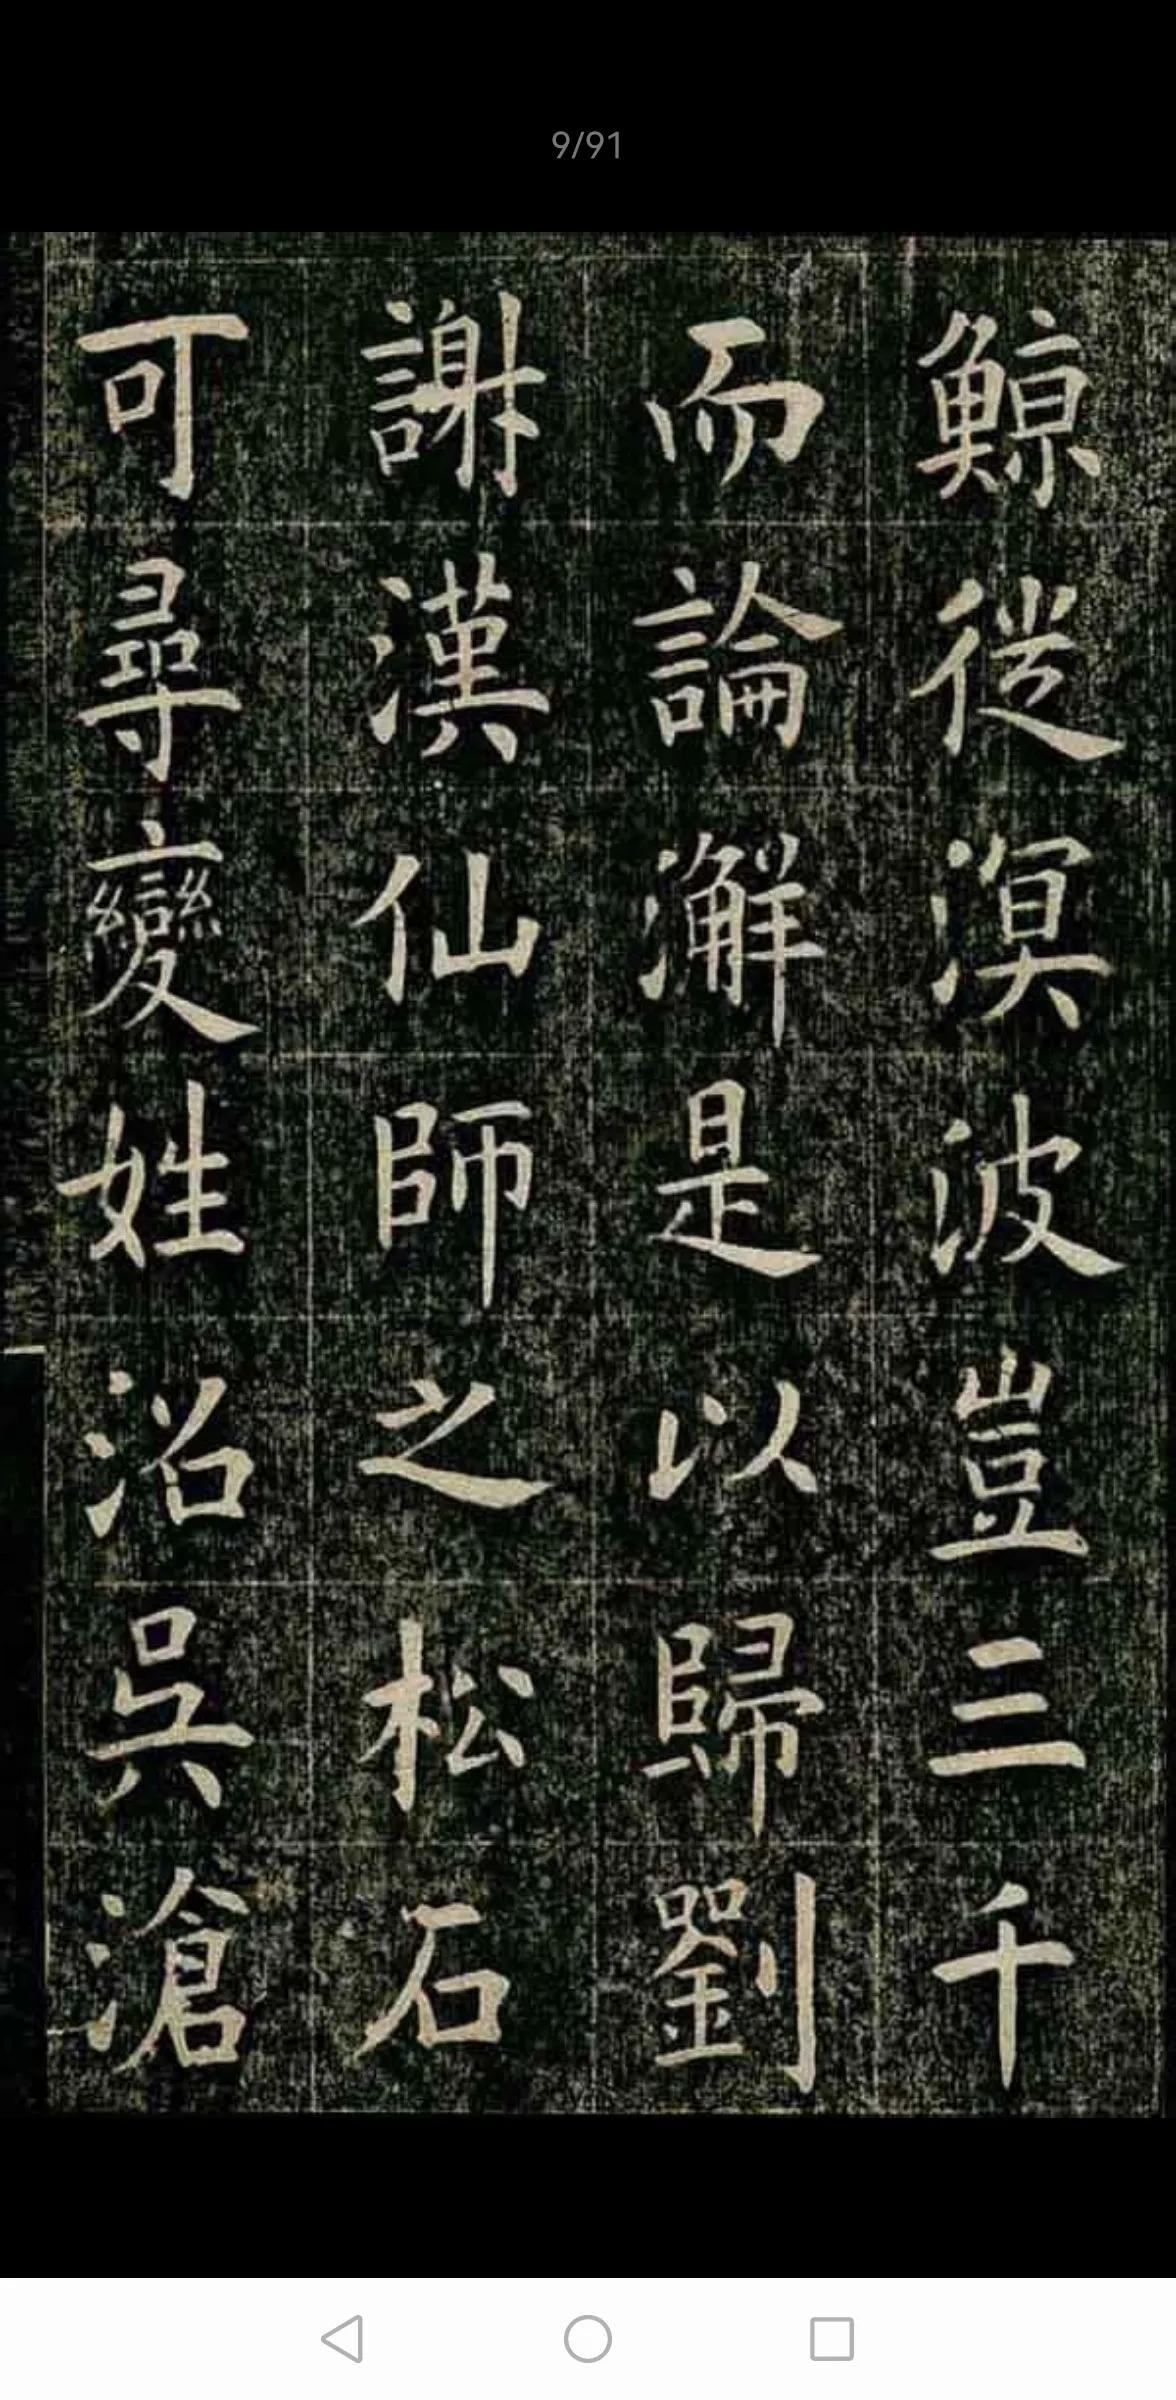 9/91
鯨從溟波豈三千
而論澥是以歸劉
謝漢仙師之松石
可尋變姓沼吳滄